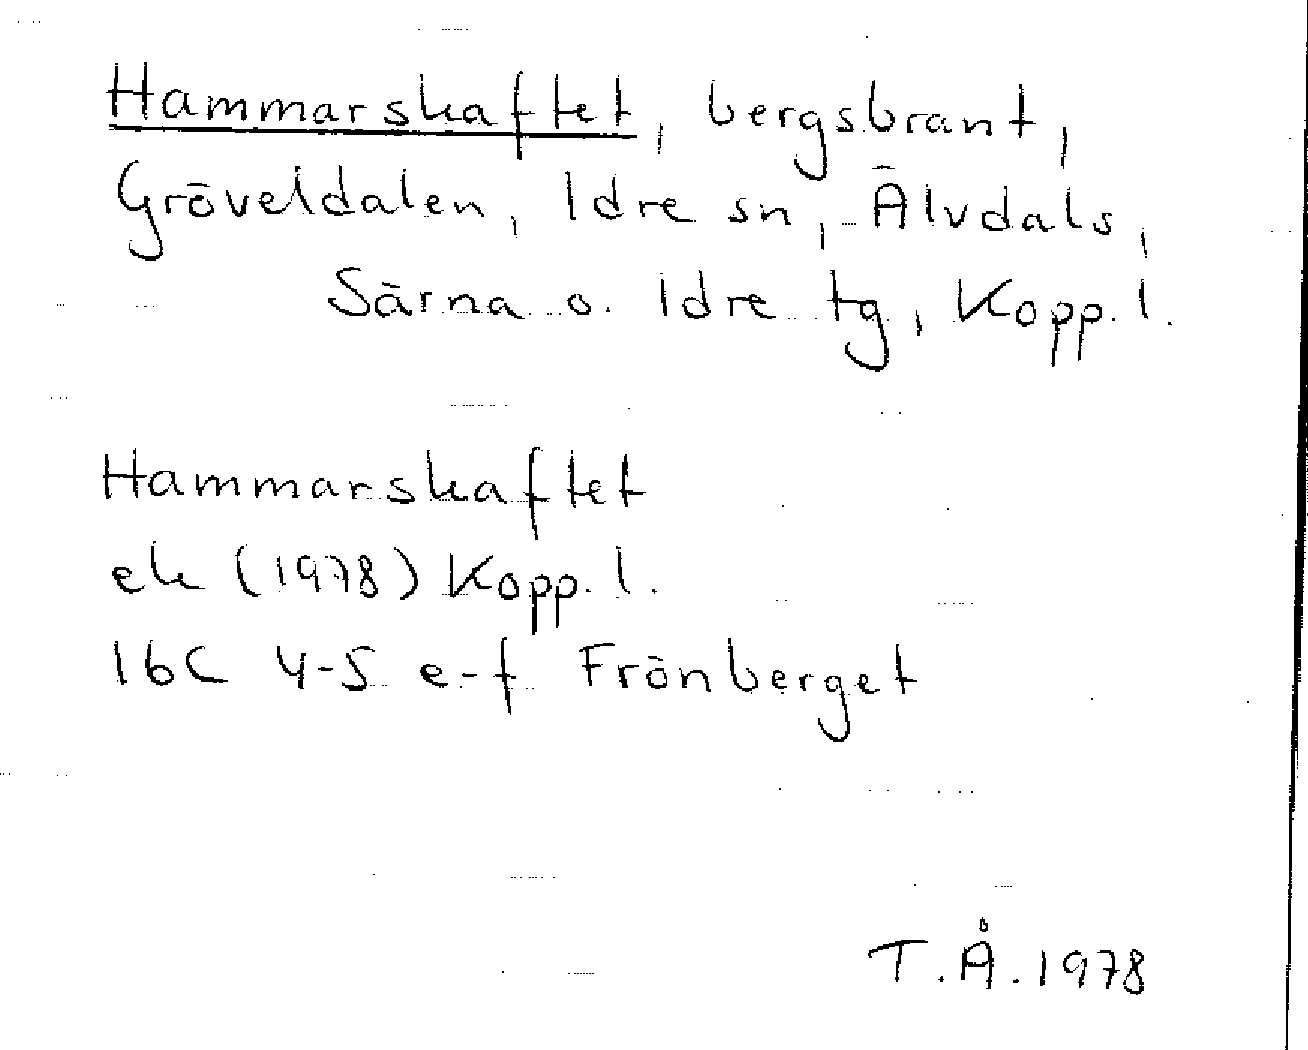 Hammarskaftet, bergsbrant,
Gröveldalen, Idre sn, Älvdals,
Särna o. Idre tg, Kopp. l.
Hammarskaftet
ek (1978) Kopp. l.
16C 4-5 e-f Frönberget
T.Å. 1978